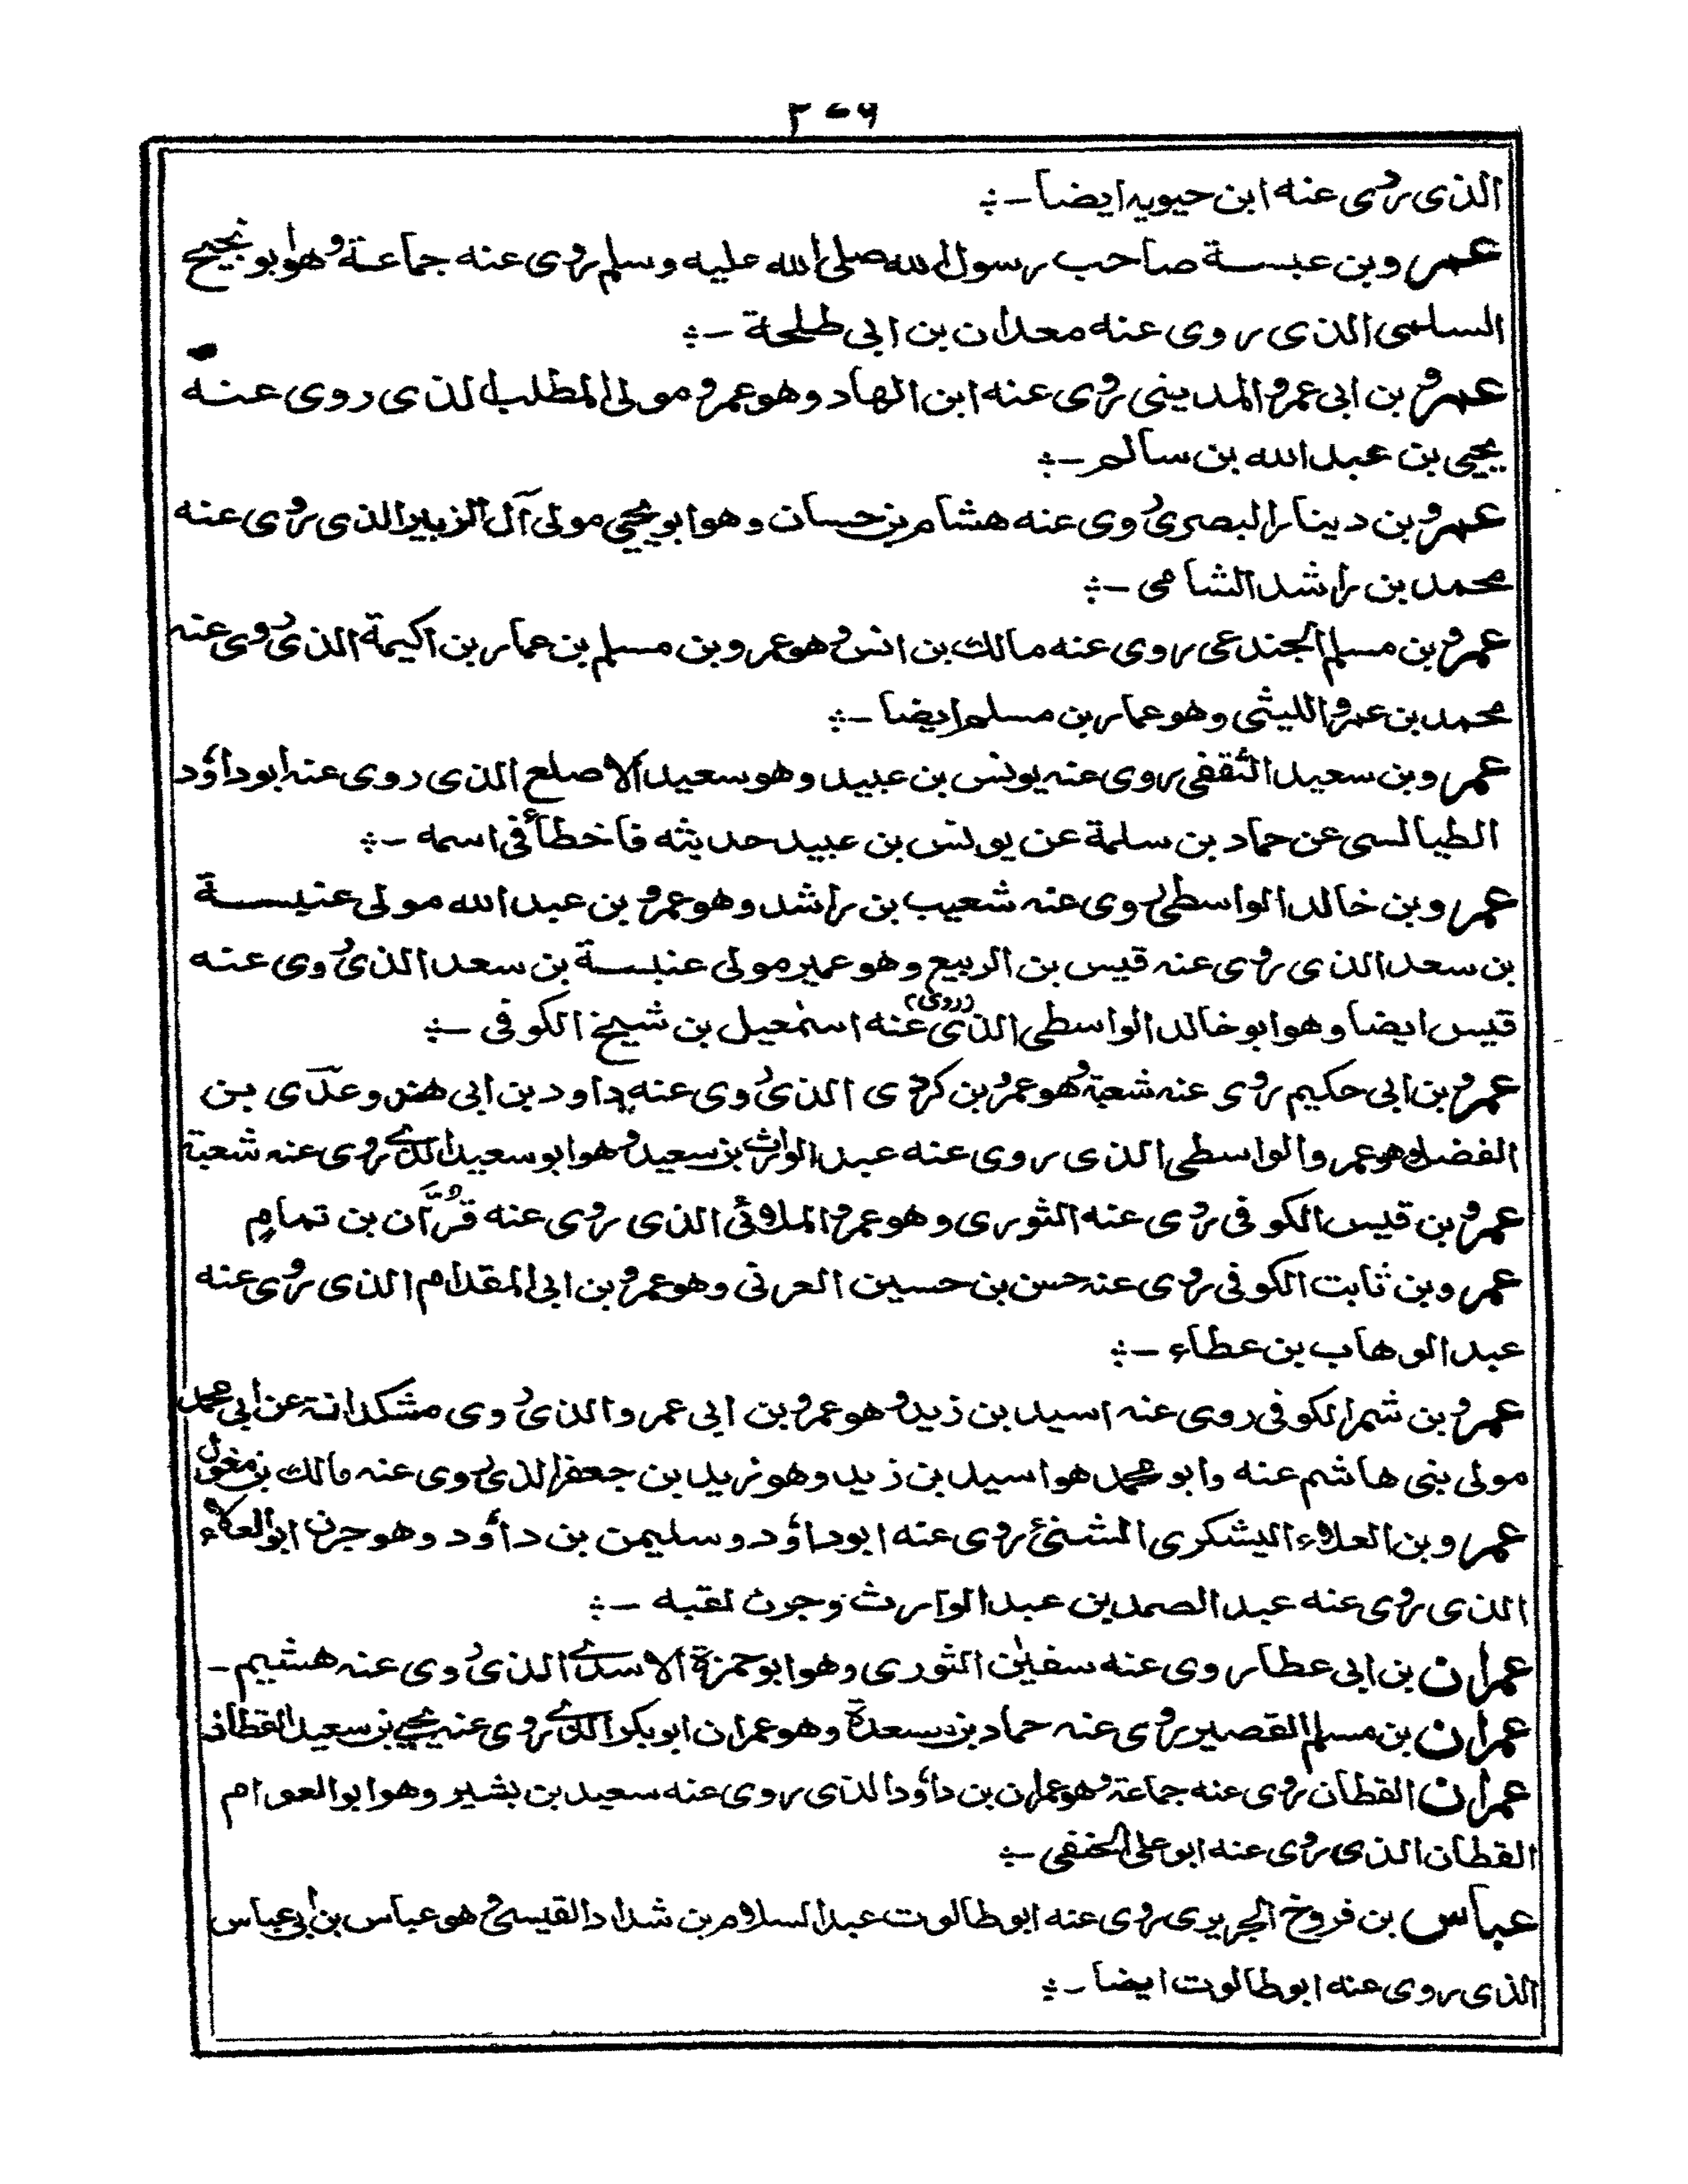 ٢٠٦
الذى روى عنه ابن حيويه ايضا -
عمرو بن عبسة صاحب رسول الله صلى الله عليه وسلم روى عنه جماعة وهو ابو نجيح
السلمى الذى روى عنه معدان بن ابى طلحة -
عمرو بن ابى عمرو المدينى روى عنه ابن الهاد وهو عمرو مولى المطلب الذى روى عنه
يحيى بن عبد الله بن سالم -
عمرو بن دينار البصرى روى عنه هشام بن حسان وهو ابو يحيى مولى آل الزبير الذى روى عنه
محمد بن راشد الشامى -
عمرو بن مسلم الجندعى روى عنه مالك بن انس وهو عمرو بن مسلم بن عمار بن اكيمة الذى روى عنه
محمد بن عمرو الليثى وهو عمار بن مسلم ايضا -
عمرو بن سعيد الثقفى روى عنه يونس بن عبيد وهو سعيد الاصلع الذى روى عنه ابو داؤد
الطيالسى عن حماد بن سلمة عن يونس بن عبيد حديثه فاخطأ فى اسمه -
عمرو بن خالد الواسطى روى عنه شعيب بن راشد وهو عمرو بن عبد الله مولى عنبسة
بن سعد الذى روى عنه قيس بن الربيع وهو عمير مولى عنبسة بن سعد الذى روى عنه
قيس ايضا وهو ابو خالد الواسطى الذى (روى) عنه اسمٰعيل بن شيخ الكوفى -
عمرو بن ابى حكيم روى عنه شعبة وهو عمرو بن كردى الذى روى عنه داود بن ابى هند وعدّى بن
الفضل وهو عمرو الواسطى الذى روى عنه عبد الوارث بن سعيد وهو ابو سعيد الذى روى عنه شعبة
عمرو بن قيس الكوفى روى عنه الثورى وهو عمرو الملائى الذى روى عنه قُرَّان بن تمامٍ
عمرو بن ثابت الكوفى روى عنه حسن بن حسين العرنى وهو عمرو بن ابى المقدام الذى روى عنه
عبد الوهاب بن عطاء -
عمرو بن شمر الكوفى روى عنه اسيد بن زيد وهو عمرو بن ابى عمرو الذى روى مشكدانة عن ابى محمد
مولى بنى هاشم عنه وابو محمد هو اسيد بن زيد وهو زيد بن جعفر الذى روى عنه مالك بن مغول
عمرو بن العلاء اليشكرى المشنئ روى عنه ابو داؤد وسليمن بن داؤد وهو جرن ابو العلاء
الذى روى عنه عبد الصمد بن عبد الوارث وجرن لقبه -
عمران بن ابى عطا روى عنه سفيٰن الثورى وهو ابو حمزة الاسدى الذى روى عنه هشيم -
عمران بن مسلم القصير روى عنه حماد بن مسعدة وهو عمران ابو بكر الذى روى عنه يحيى بن سعيد القطان
عمران القطان روى عنه جماعة وهو عمران بن داؤد الذى روى عنه سعيد بن بشير وهو ابو العوام
القطان الذى روى عنه ابو على الحنفى -
عباس بن فروخ الجريرى روى عنه ابو طالوت عبد السلام بن شداد القيسى وهو عباس بن ابى عباس
الذى روى عنه ابو طالوت ايضا -